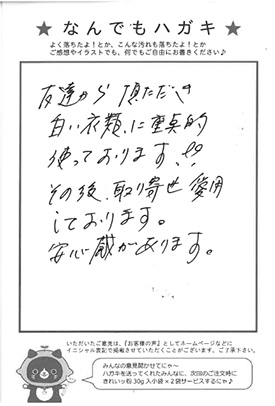 ★ なんでもハガキ ★
よく落ちたよ！とか、こんな汚れも落ちたよ！とか
ご感想やイラストでも、何でもご自由にお書きください♪
友達から頂ただき
白い衣類に重点的
使っております!!
その後、取り寄せ愛用
しております。
安心感があります。
いただいたご意見は、「お客様の声」としてホームページなどに
イニシャル表記で掲載させていただくことがございます。ご了承下さい。
みんなの意見聞かせてにゃ～
ハガキを送ってくれたみんなに、次回のご注文時に
きれいッ粉 30g 入小袋 × 2 袋サービスするにゃ♪